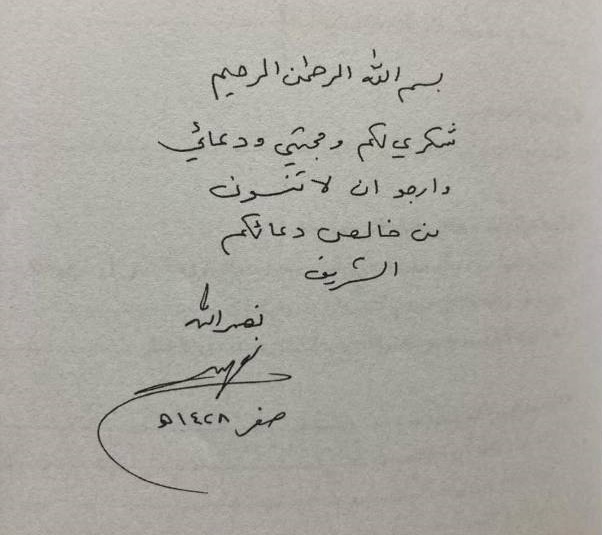 بسم الله الرحمن الرحيم
شكري لكم ومحبتي ودعائي
وارجو ان لا تنسون
من خالص دعائكم
الشريف
نصر الله
صفر ١٤٢٨ه